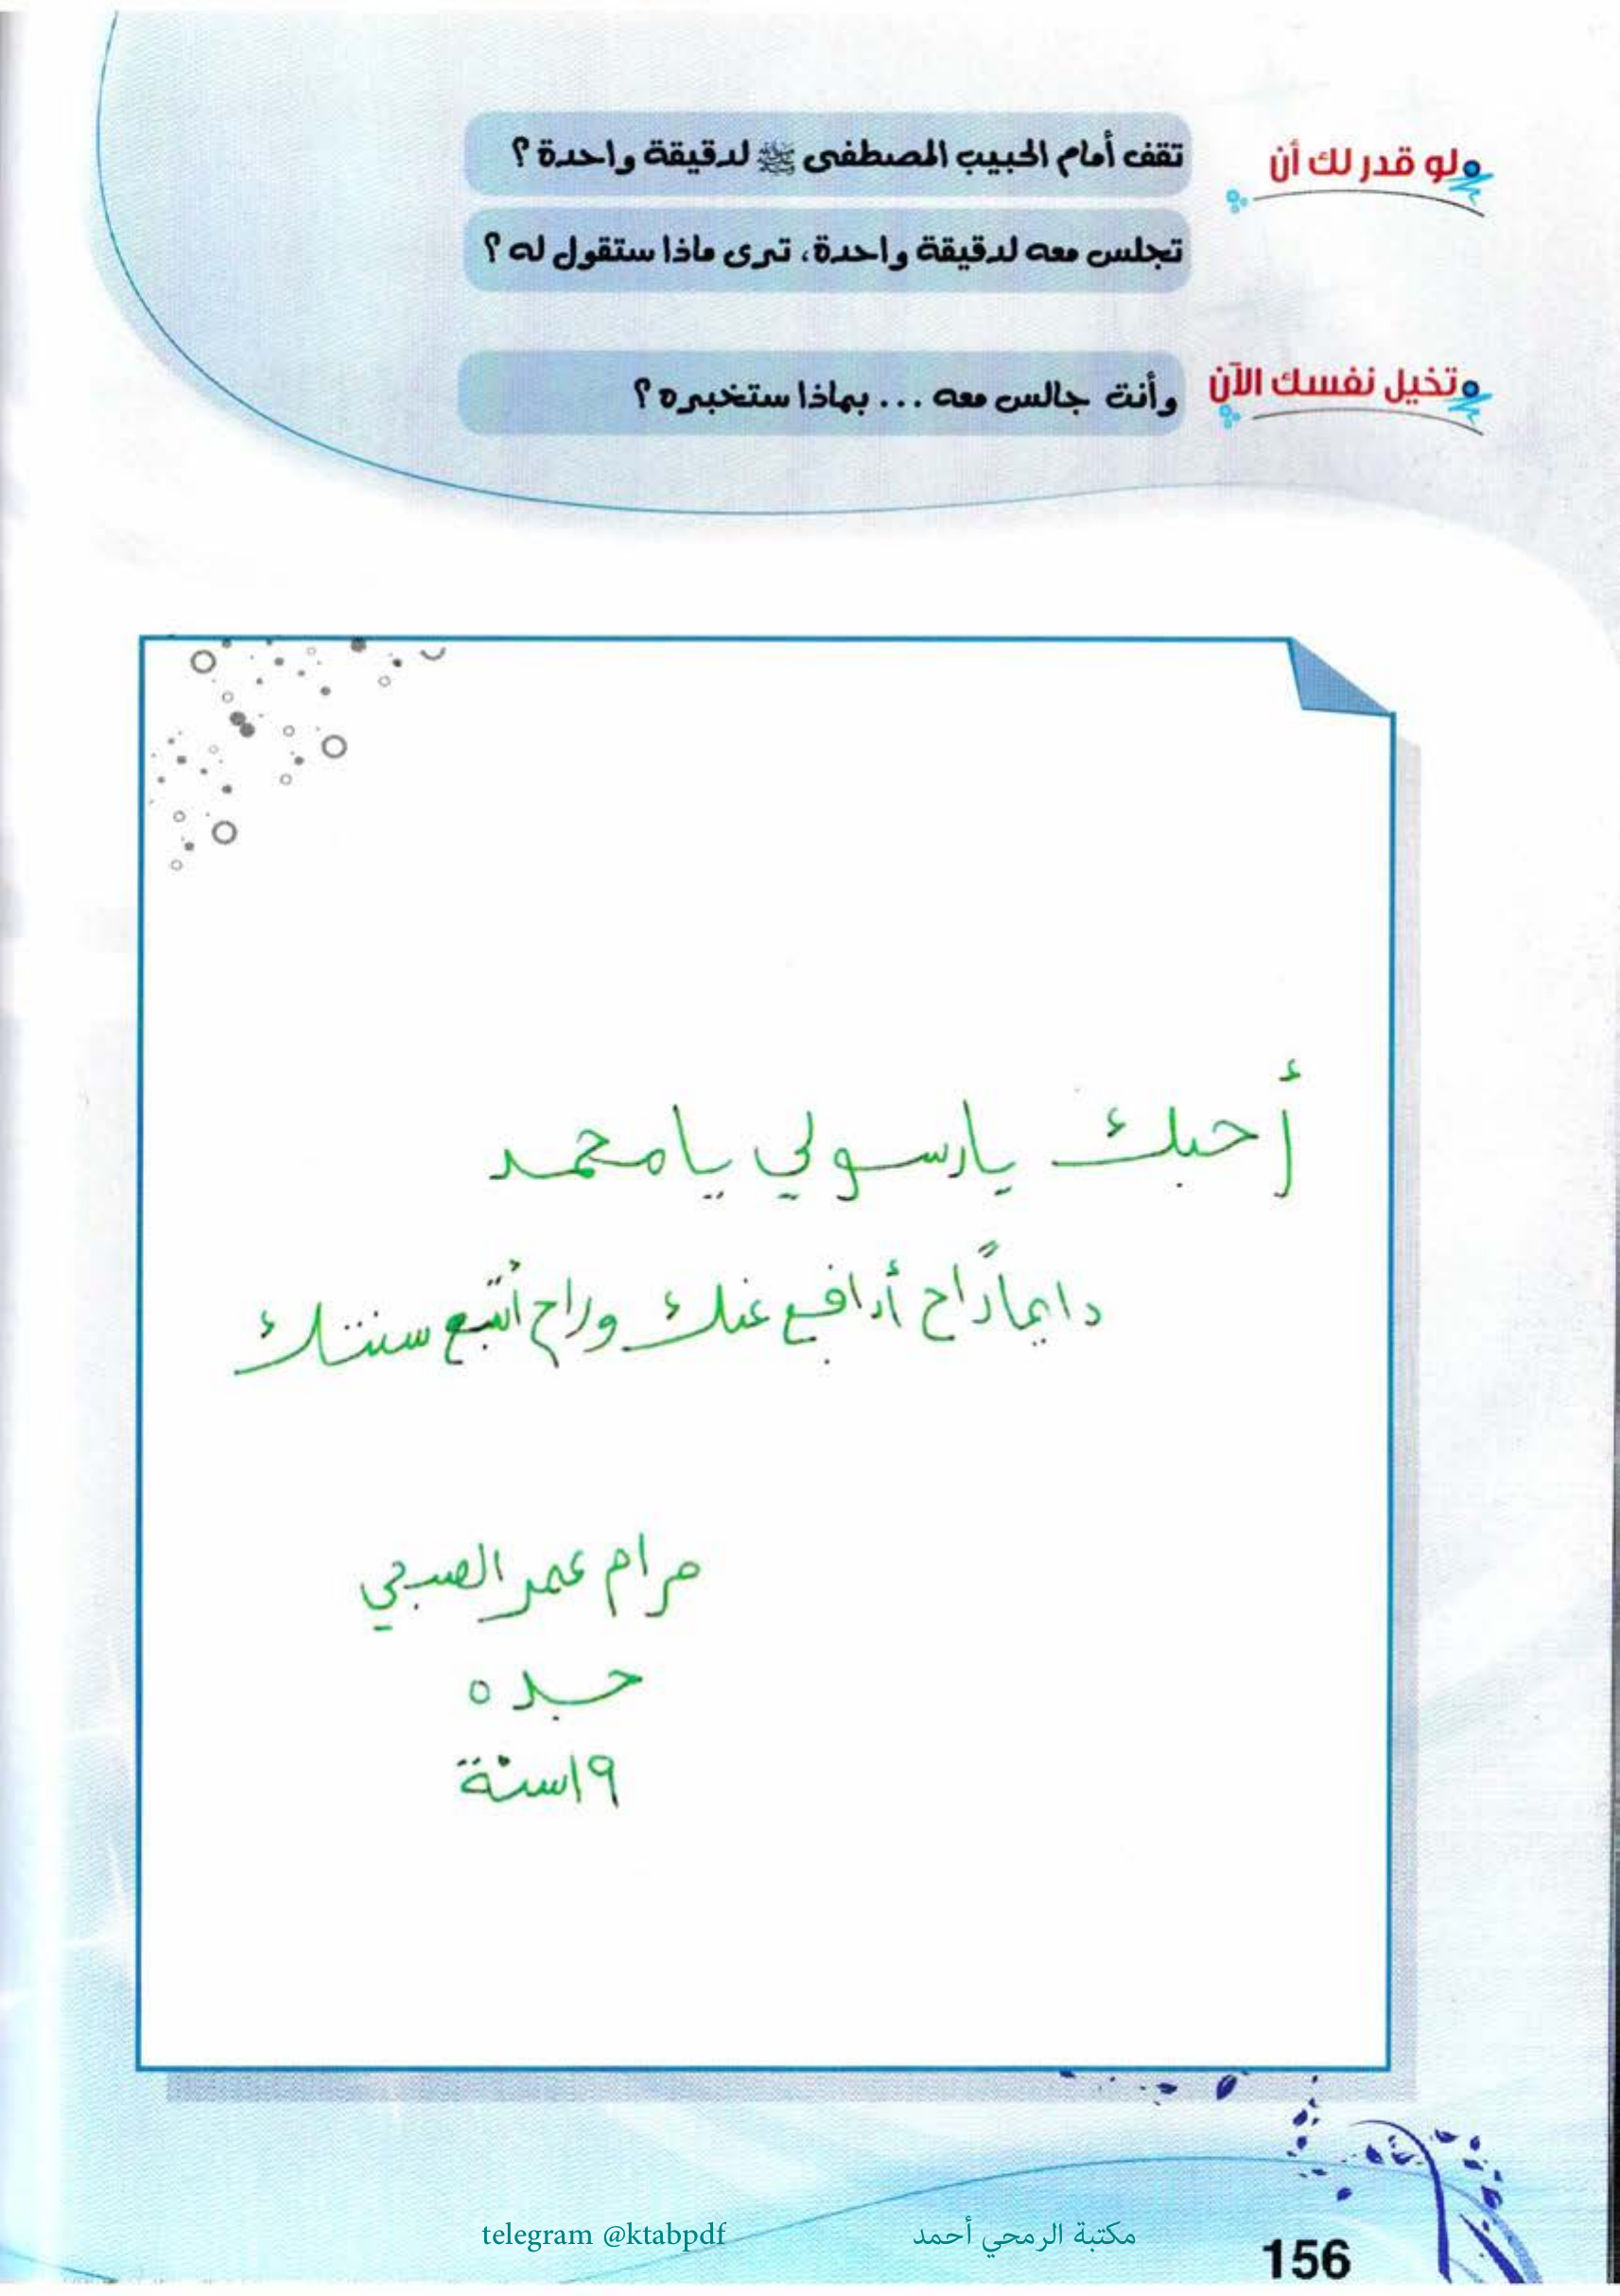 لو قدر لك أن
تقف أمام الحبيب المصطفى ﷺ لدقيقة واحدة ؟
تجلس معه لدقيقة واحدة، ترى ماذا ستقول له ؟
تخيل نفسك الآن
وأنت جالس معه ... بماذا ستخبره ؟
أحبك يارسولي يامحمد
دايماً راح أدافع عنك وراح أتبع سنتك
مرام عمر الصبحي
جده
١٩سنة
مكتبة الرمحي أحمد
telegram @ktabpdf
156